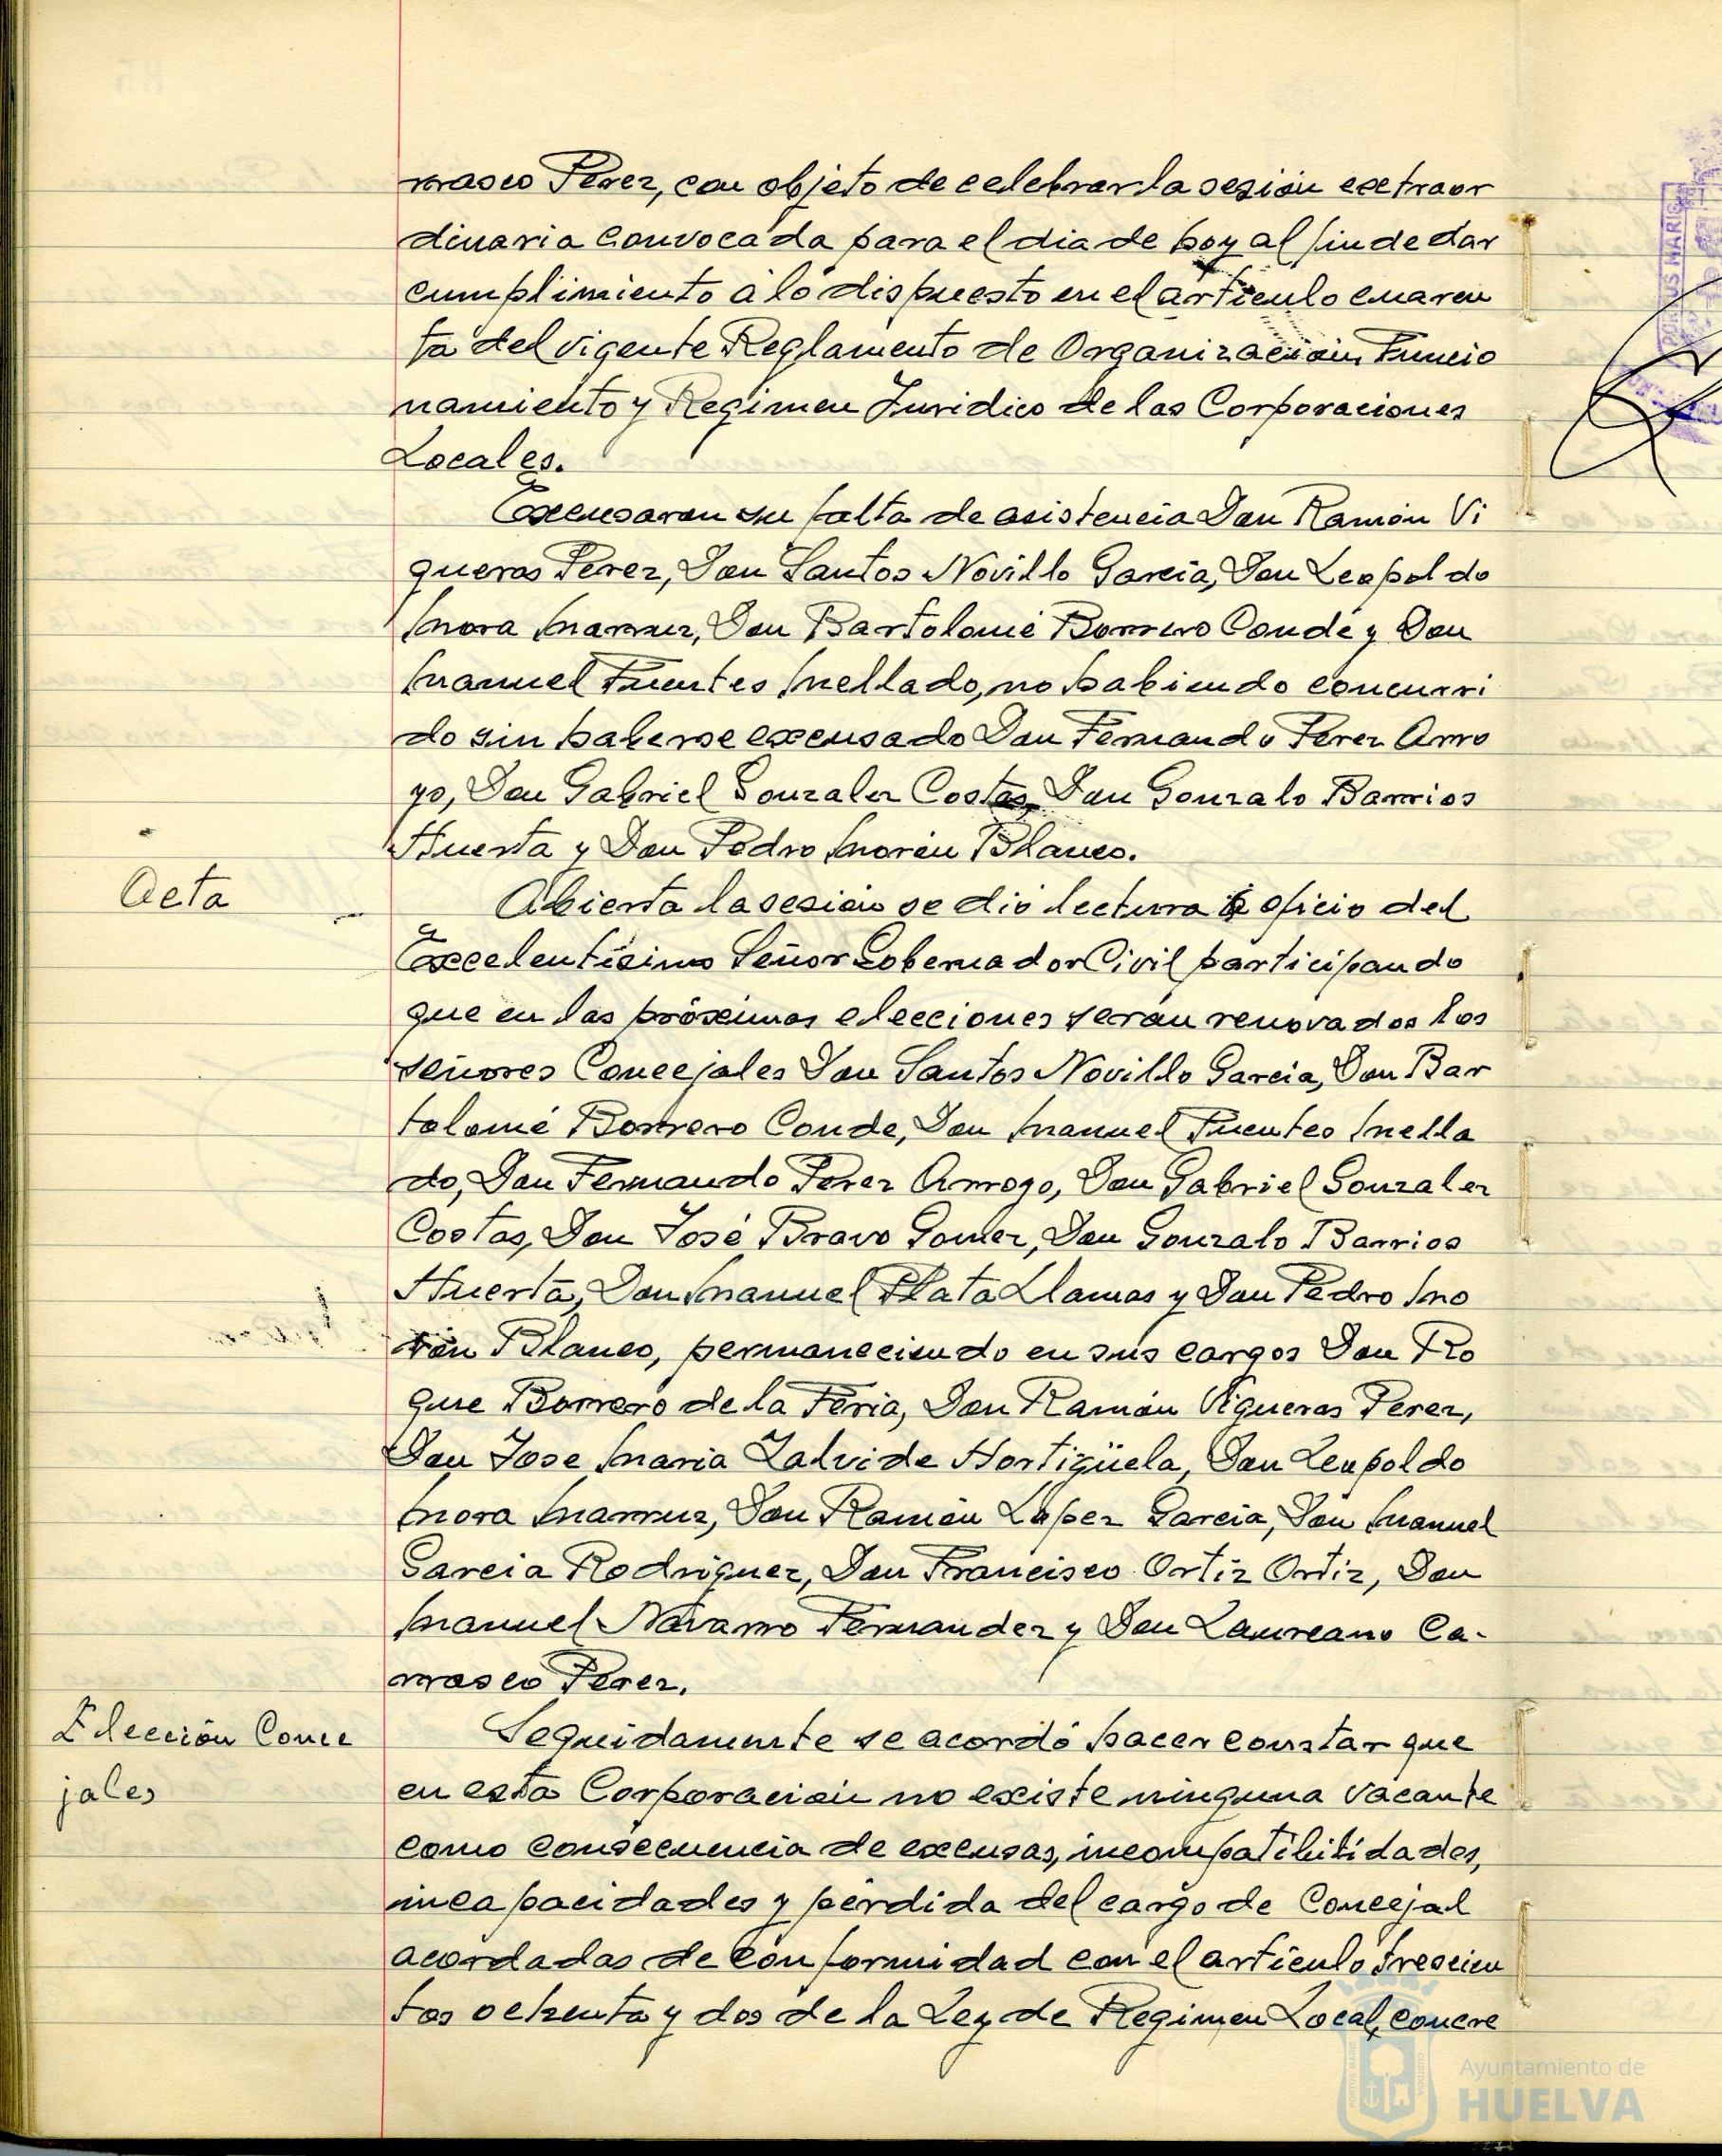 rrasco Perez, con objeto de celebrar la sesión extraor
dinaria convocada para el dia de hoy al fin de dar
cumplimiento a lo dispuesto en el artículo cuaren
ta del vigente Reglamento de Organización Funcio
namiento y Regimen Juridico de las Corporaciones
Locales.
Excusaron su falta de asistencia Don Ramón Vi
gueras Perez, Don Santos Novillo Garcia, Don Leopoldo
Mora Marruz, Don Bartolomé Borrero Conde y Don
Manuel Fuentes Mellado, no habiendo concurri
do sin haberse excusado Don Fernando Perez Arro
yo, Don Gabriel Gonzalez Costas, Don Gonzalo Barrios
Huerta y Don Pedro Morón Blanco.
Acta
Abierta la sesión se dió lectura a oficio del
Excelentísimo Señor Gobernador Civil participando
que en las próximas elecciones serán renovados los
señores Concejales Don Santos Novillo Garcia, Don Bar
tolomé Borrero Conde, Don Manuel Fuentes Mella
do, Don Fernando Perez Arroyo, Don Gabriel Gonzalez
Costas, Don José Bravo Gomez, Don Gonzalo Barrios
Huerta, Don Manuel Plata Llamas y Don Pedro Mo
rón Blanco, permaneciendo en sus cargos Don Ro
que Borrero de la Feria, Don Ramón Vigueras Perez,
Don Jose Maria Zalvide Hortigüela, Don Leopoldo
Mora Marruz, Don Ramón López Garcia, Don Manuel
Garcia Rodriguez, Don Francisco Ortiz Ortiz, Don
Manuel Navarro Fernandez y Don Laureano Ca-
rrasco Perez.
Elección Conce
jales
Seguidamente se acordó hacer constar que
en esta Corporación no existe ninguna vacante
como consecuencia de excusas, incompatibilidades,
incapacidades y pérdida del cargo de Concejal
acordadas de conformidad con el artículo trescien
tos ochenta y dos de la Ley de Regimen Local, concre
Ayuntamiento de
HUELVA